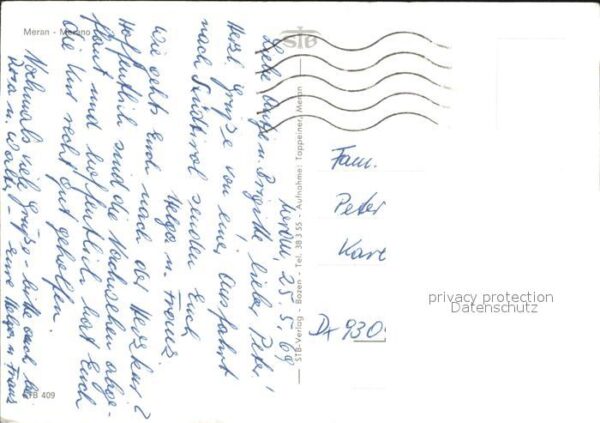 Meran - Merano
Meran, 25.5.69
Liebe Angi u. Brigitte, lieber Peter!
Herzl. Grüße von einer Ausfahrt
nach Südtirol senden Euch
Helga u. Franz
Wie gehts Euch nach der Herzkur?
Hoffentlich sind die Nachwehen abge-
flaut und hoffentlich hat Euch
die Kur recht gut geholfen.
Nochmals viele Grüße - bitte auch an
u. Walter - Eure Helga u. Franz
STB 409
STB
STB-Verlag - Bozen - Tel. 38 3 55 - Aufnahme: Tappeiner, Meran
Fam.
Peter
Karl
D-930
privacy protection
Datenschutz